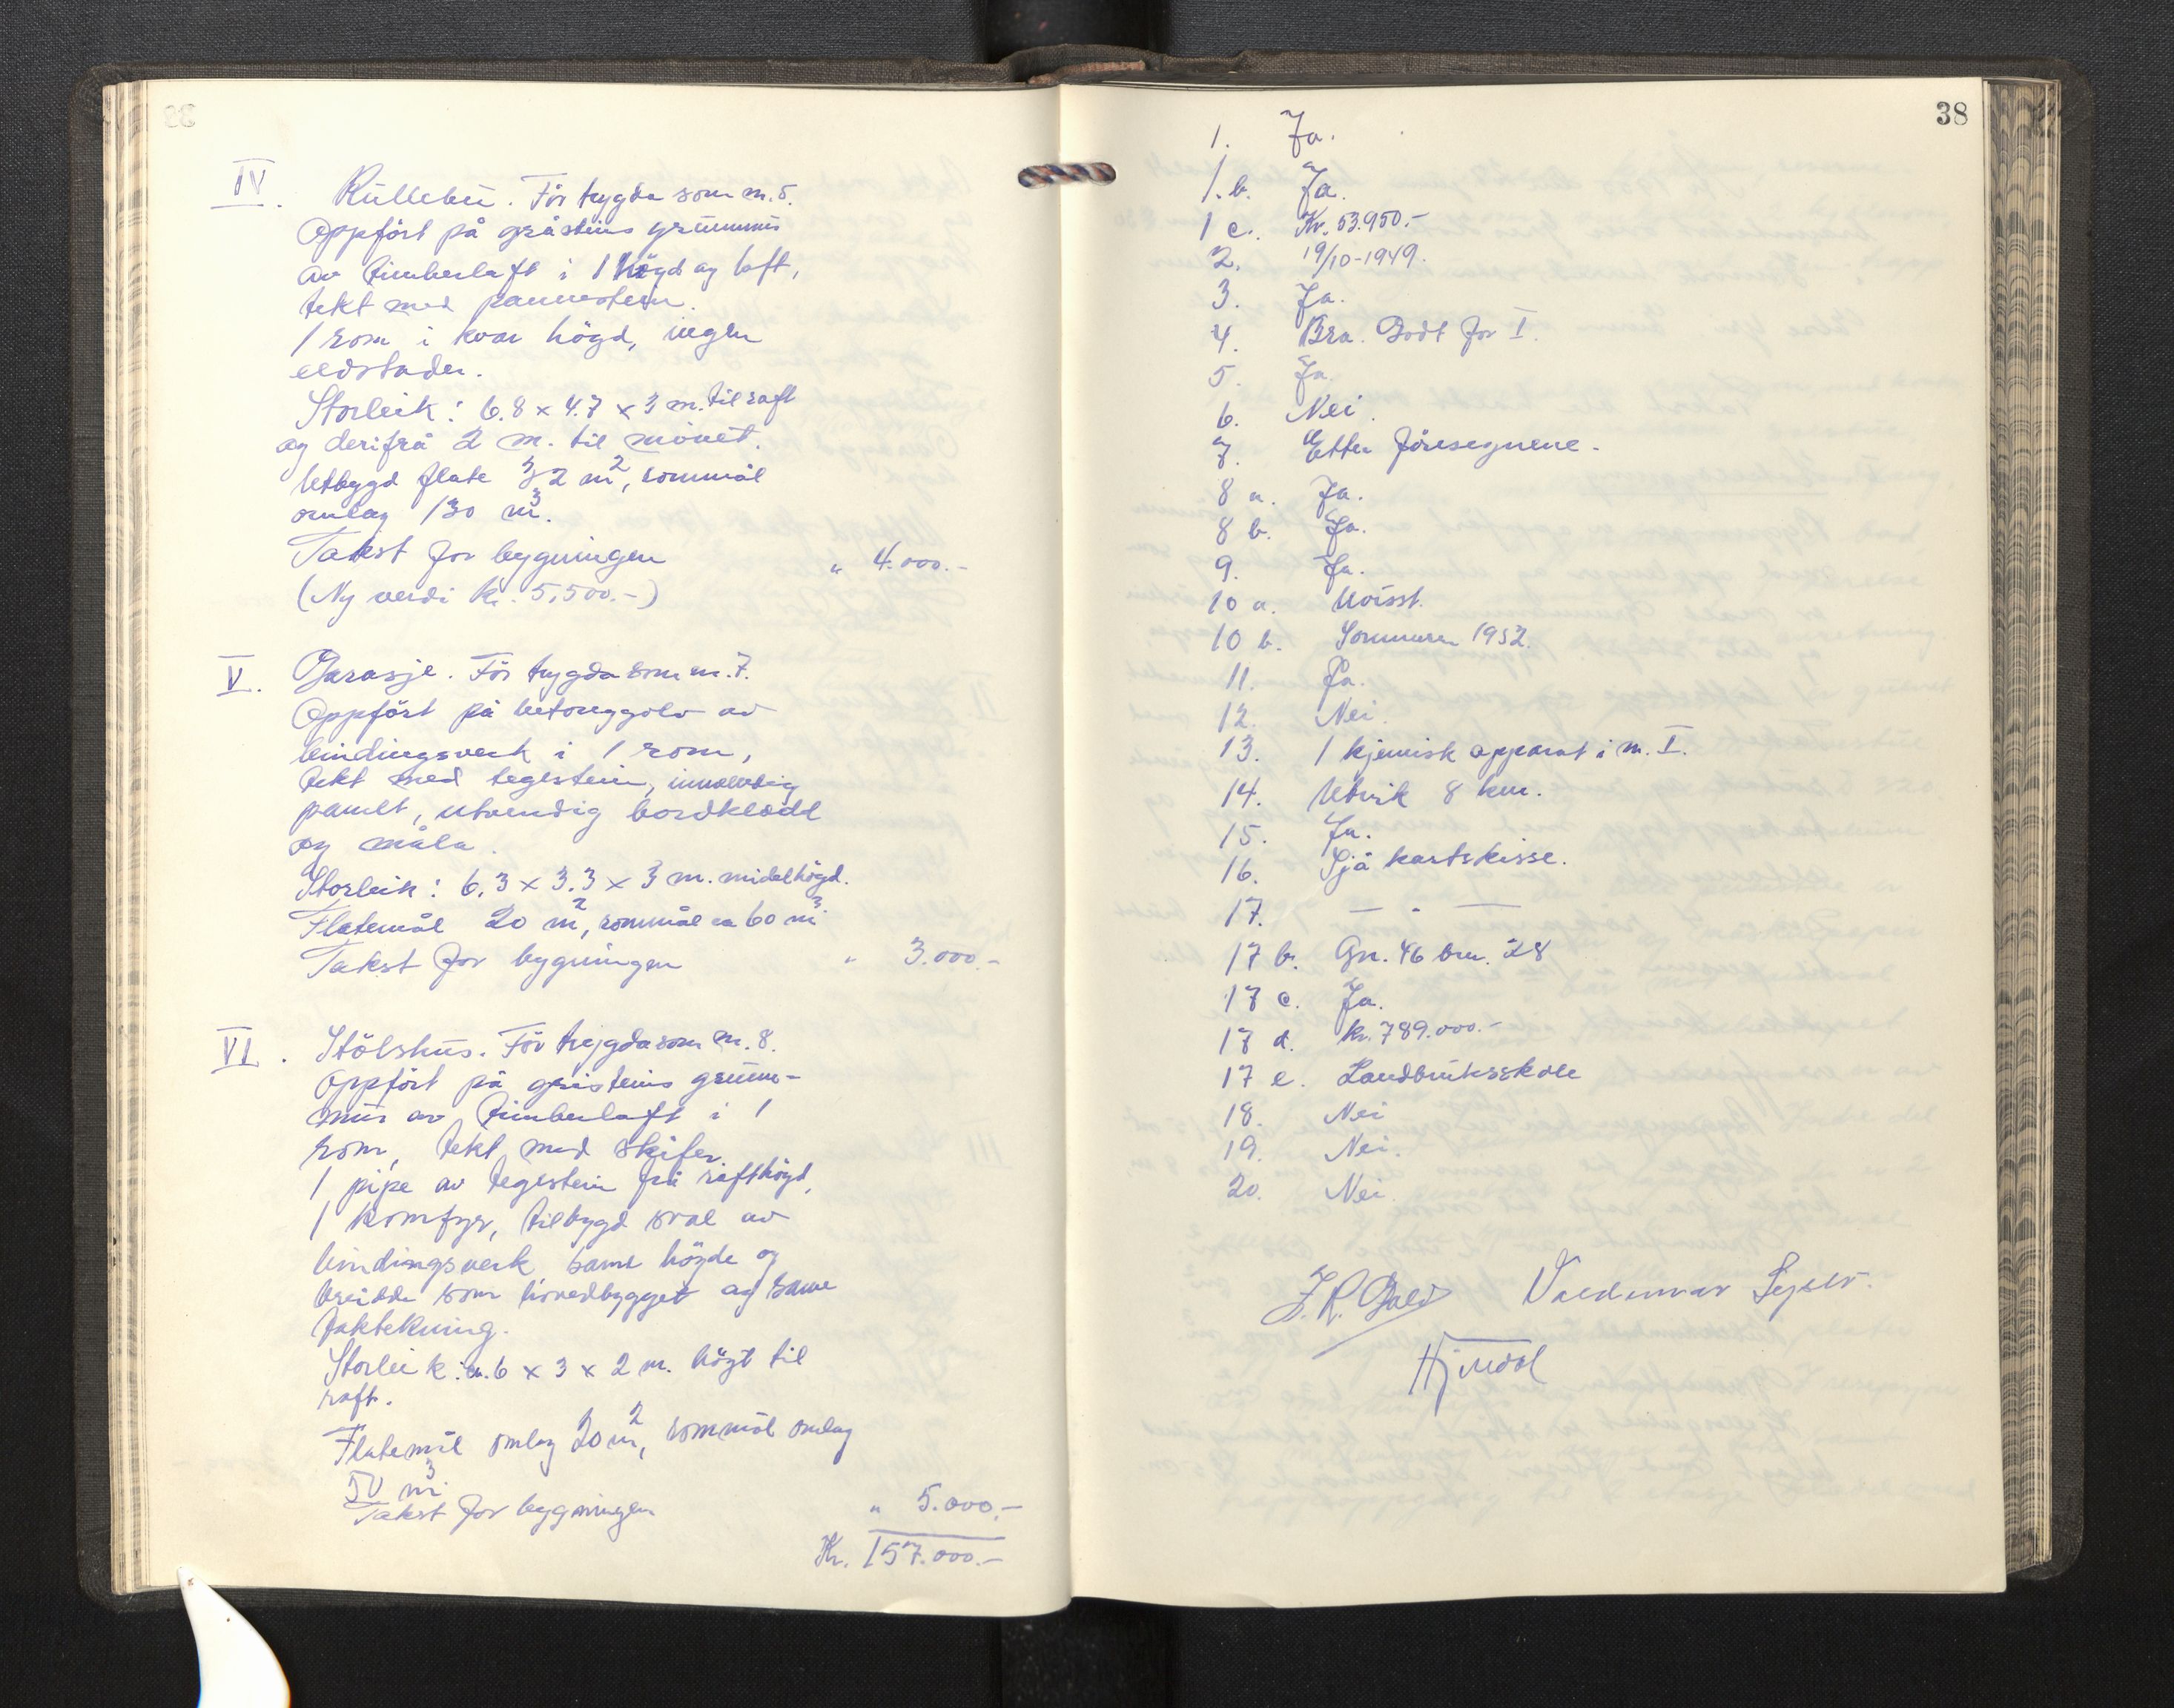 IV. Kullebu. För trygda som m. 5.
Oppfört på gråsteins grunnmur
av timberlaft i 1 högd og loft,
tekt med pannestein.
1 rom i kvar högd, ingen
eldstader.
Storleik: 6.8 x 4.7 x 3 m. til raft
og derifrå 2 m. til mönet.
Utbygd flate 32 m², rommål
omlag 130 m³.
Takst for bygningen " 4.000.-
(Ny verdi kr. 5.500.-)
V. Garasje. För trygda som m. 7.
Oppfört på betonggolv av
bindingsverk i 1 rom,
tekt med teglstein, innvendig
panelt, utvendig bordkledd
og måla.
Storleik: 6.3 x 3.3 x 3 m. midelhögd.
Flatemål 20 m², rommål ca 60 m³.
Takst for bygningen " 3.000.-
VI. Stölshus. För trygda som m. 8.
Oppfört på gråsteins grunn-
mur av timberlaft i 1
rom, tekt med skifer.
1 pipe av teglstein frå rafthögd,
1 komfyr, tilbygd sval av
bindingsverk same högde og
breidde som hovedbygget og same
taktekning.
Storleik: m. 6 x 3 x 2 m. högt til
raft.
Flatemål omlag 20 m², rommål omlag
50 m³
Takst for bygningen " 5.000.-
Kr. 157.000.-
38
1. Ja.
1. b. Ja.
1 c. Kr. 53.950.-
2. 19/10-1949.
3. Ja.
4. Bra. Godt for I.
5. Ja.
6. Nei.
7. Etter föresegnene.
8 a. Ja.
8 b. Ja.
9. Ja.
10 a. Uvisst.
10 b. Sommeren 1952.
11. Ja.
12. Nei.
13. 1 kjemisk apparat i m. I.
14. Utvik 8 km.
15. Ja.
16. Sjå kartskisse.
17. — " —
17 b. Gn. 46 bnr. 28
17 c. Ja.
17 d. kr. 789.000.-
17 e. Landbruksskole
18. Nei
19. Nei.
20. Nei.
J. R. Valdemar